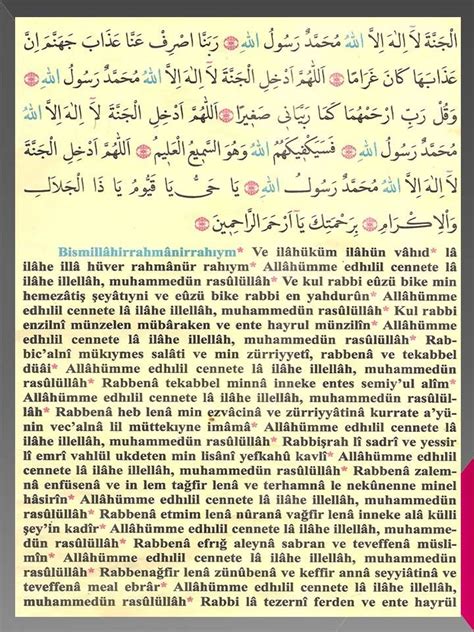 الْجَنَّةَ لَآ اِلٰهَ اِلَّا اللّٰهُ مُحَمَّدٌ رَسُولُ اللّٰهِ * رَبَّنَا اصْرِفْ عَنَّا عَذَابَ جَهَنَّمَ اِنَّ
عَذَابَهَا كَانَ غَرَامًا * اَللّٰهُمَّ اَدْخِلِ الْجَنَّةَ لَآ اِلٰهَ اِلَّا اللّٰهُ مُحَمَّدٌ رَسُولُ اللّٰهِ *
وَقُلْ رَبِّ ارْحَمْهُمَا كَمَا رَبَّيَانِى صَغِيرًا * اَللّٰهُمَّ اَدْخِلِ الْجَنَّةَ لَآ اِلٰهَ اِلَّا اللّٰهُ
مُحَمَّدٌ رَسُولُ اللّٰهِ * فَسَيَكْفِيكَهُمُ اللّٰهُ وَهُوَ السَّمِيعُ الْعَلِيمُ * اَللّٰهُمَّ اَدْخِلِ الْجَنَّةَ
لَآ اِلٰهَ اِلَّا اللّٰهُ مُحَمَّدٌ رَسُولُ اللّٰهِ * يَا حَىُّ يَا قَيُّومُ يَا ذَا الْجَلَالِ
وَالْاِكْرَامِ * بِرَحْمَتِكَ يَآ اَرْحَمَ الرَّاحِمِينَ *
Bismillâhirrahmânirrahıym* Ve ilâhüküm ilâhün vâhıd* lâ
ilâhe illâ hüver rahmânür rahıym* Allâhümme edhılil cennete lâ
ilâhe illellâh, muhammeden rasûlüllâh* Ve kul rabbi eûzü bike min
hemezâtiş şeyâtıyni ve eûzü bike rabbi en yahdurûn* Allâhümme
edhılil cennete lâ ilâhe illellâh, muhammeden rasûlüllâh* Kul rabbi
enzilnî münzelen mübâraken ve ente hayrul münzilîn* Allâhümme
edhılil cennete lâ ilâhe illellâh, muhammedün rasûlüllâh* Rab-
bic'alnî mükıymes salâti ve min zürriyyetî, rabbenâ ve tekabbel
düâi* Allâhümme edhılil cennete lâ ilâhe illellâh, muhammedün
rasûlüllâh* Rabbenâ tekabbel minnâ inneke entes semiy'ul alîm*
Allâhümme edhılil cennete lâ ilâhe illellâh, muhammedün rasûlül-
lâh* Rabbenâ heb lenâ min ezvâcinâ ve zürriyyâtinâ kurrate a'yü-
nin vec'alnâ lil müttekıyne imâmâ* Allâhümme edhılil cennete lâ
ilâhe illellâh, muhammedün rasûlüllâh* Rabbişrah lî sadrî ve yessir
lî emrî vahlül ukdeten min lisânî yefkahû kavlî* Allâhümme edhılil
cennete lâ ilâhe illellâh, muhammedün rasûlüllâh* Rabbenâ zalem-
nâ enfüsenâ ve in lem tağfir lenâ ve terhamnâ le nekûnenne minel
hâsirîn* Allâhümme edhılil cennete lâ ilâhe illellâh, muhammedün
rasûlüllâh* Rabbenâ etmim lenâ nûranâ vağfir lenâ inneke alâ külli
şey'in kadîr* Allâhümme edhılil cennete lâ ilâhe illellâh, muhamme-
dün rasûlüllâh* Rabbenâ efrığ aleynâ sabran ve teveffenâ müsli-
mîn* Allâhümme edhılil cennete lâ ilâhe illellâh, muhammedün
rasûlüllâh* Rabbenağfir lenâ zünûbenâ ve keffir annâ seyyiâtinâ ve
teveffenâ meal ebrâr* Allâhümme edhılil cennete lâ ilâhe illellâh,
muhammedün rasûlüllâh* Rabbi lâ tezernî ferden ve ente hayrül